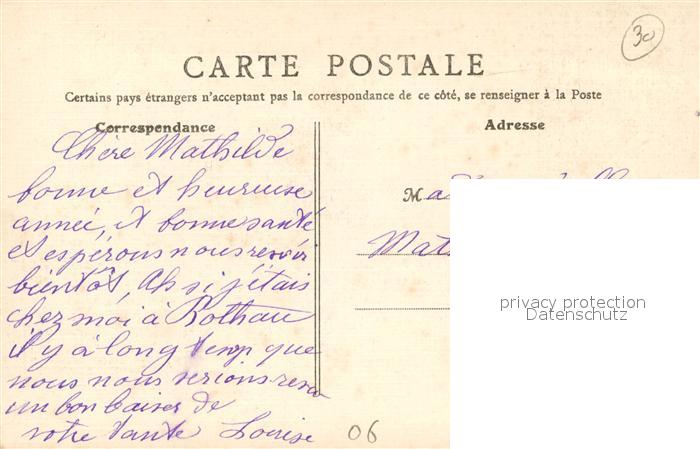 30
CARTE POSTALE
Certains pays étrangers n'acceptant pas la correspondance de ce côté, se renseigner à la Poste
Correspondance
Adresse
Chère Mathilde
bonne et heureuse
année, et bonne santé
et espérons nous revoir
bientôt, Ah si j'étais
chez moi à Rothau
il y à long temp que
nous nous serions revu
un bon baiser de
votre tante Louise
Ma
Mat
06
privacy protection
Datenschutz